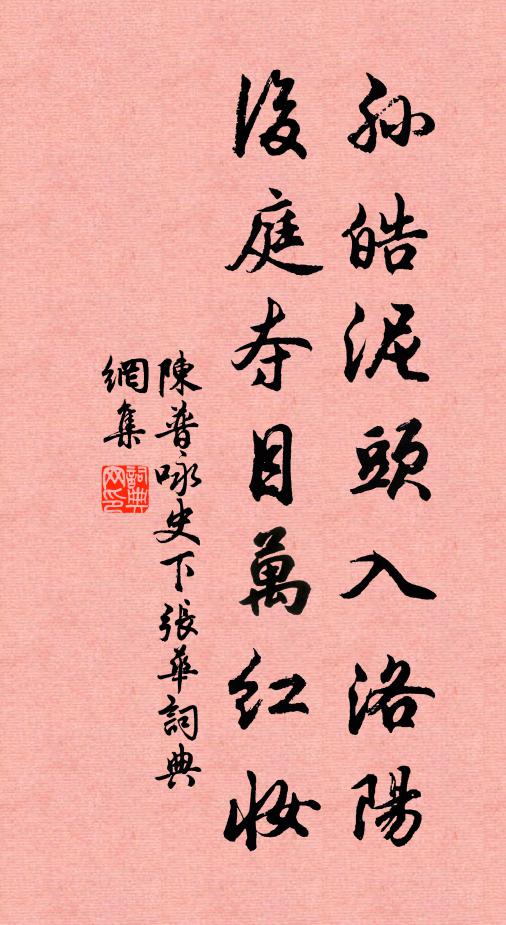 孙皓泥頭入洛陽
後庭夺目萬红妆
陳普咏史下張華詞典
網集
詞典
网印